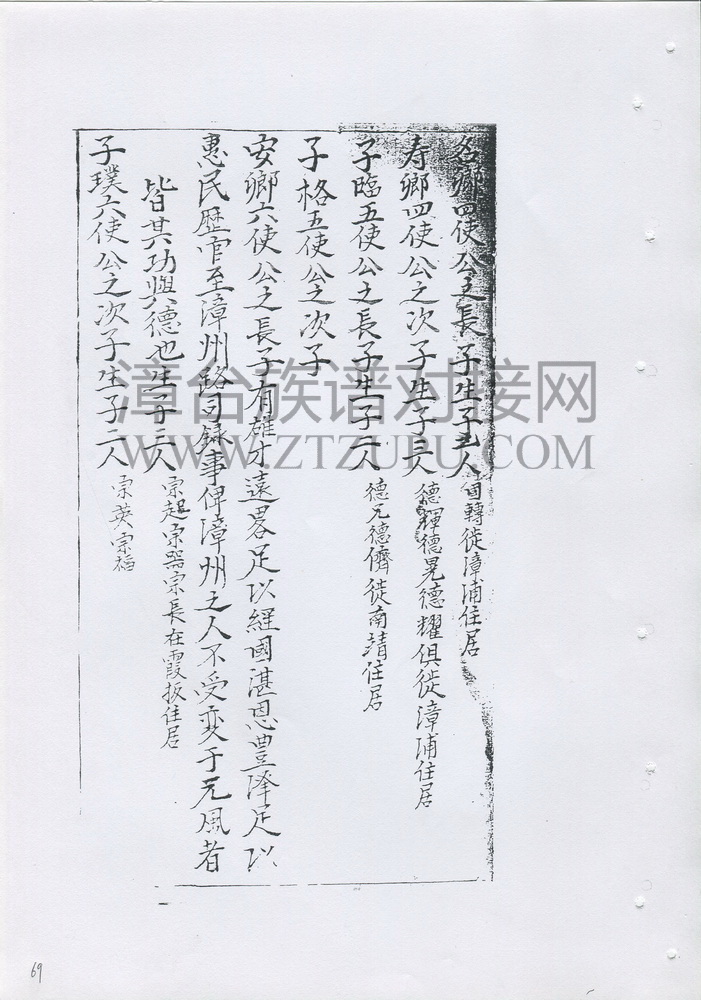 名鄉四使公之長子生子 人 國轉徙漳浦住居
寿鄉四使公之次子生子三人 德輝德晃德耀俱徙漳浦住居
子臨五使公之長子生子二人 德元德儕徙南靖住居
子格五使公之次子
安鄉六使公之長子有雄才遠畧足以經國湛恩豊泽足以
惠民歷官至漳州路司錄事俾漳州之人不受变于元風者
皆其功與德也生子三人 宗起宗器宗長在霞坂住居
子璞六使公之次子生子二人 宗英宗福
漳台族谱对接网
WWW.ZTZUPU.COM
69